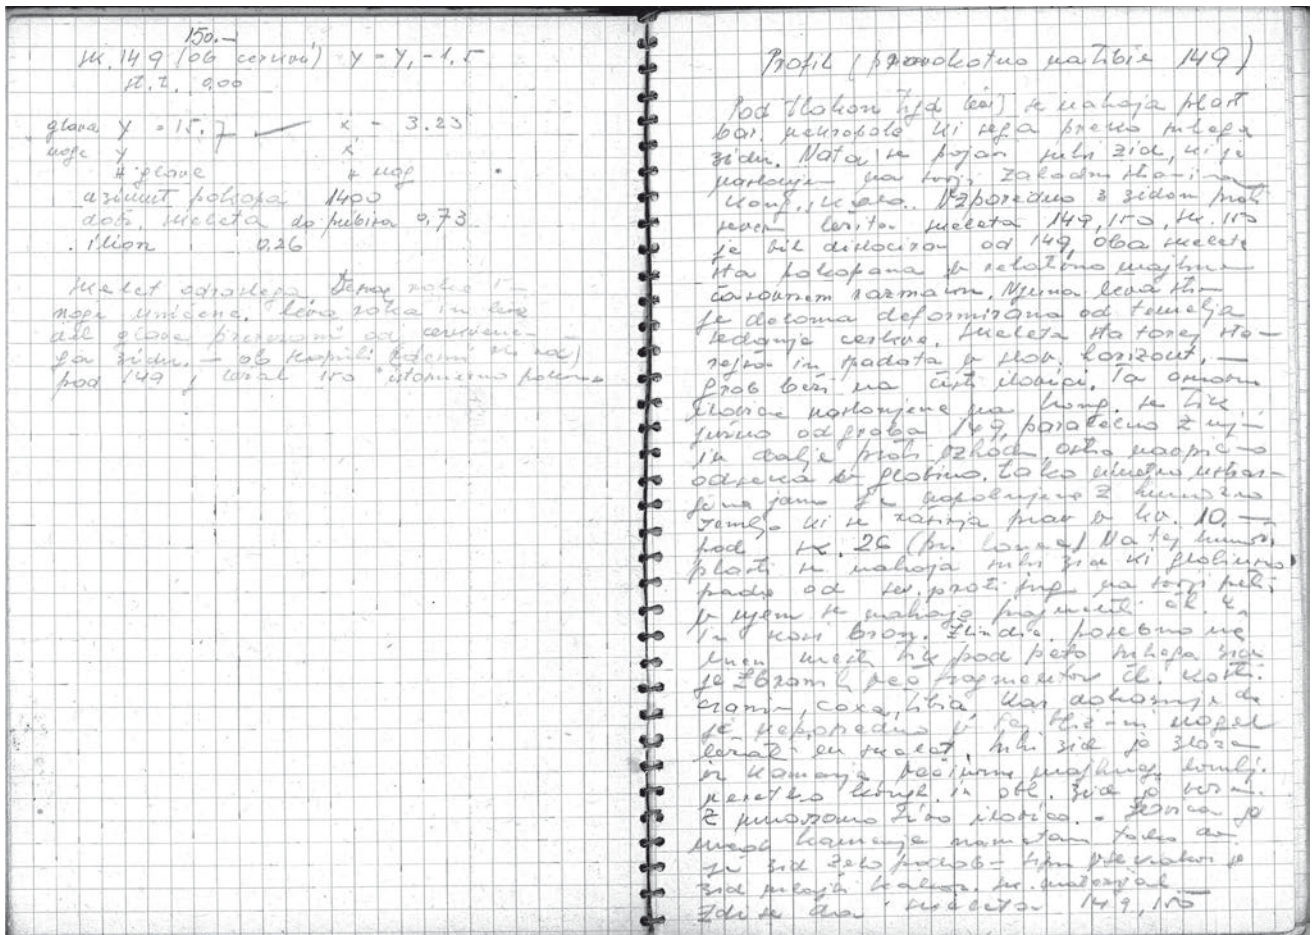 150.-
sk. 149 (ob cerkvi) y = y, -1.5
st. t. 0,00
glava y = 15.7 x - 3.23
noge y x
# glave # nog
azimut pokopa 1400
dolž. skeleta do pubisa 0,73
ilion 0,26
skelet odraslega. Desna roka in
noge uničene. leva roka in levi
del glave od cerkvene-
ga zidu. - ob
pod 149, ležal 150 istomerno
Profil (pravokotno na tibie 149)
Pod tlakom se nahaja plast
bar. nekropole ki sega preko suhega
zidu. Nato se pojavi suhi zid, ki je
naslonjen na svoji zahodni strani na
kong. skalo. Vzporedno z zidom proti
severu ležita skeleta 149, 150. sk. 150
je bil dislociran od 149, oba skeleta
sta pokopana v relativno majhnem
časovnem razmaku. Njuna leva stran
je deloma deformirana od temelja
sedanje cerkve. skeleta sta torej sta-
rejša in spadata v slov. horizont. -
grob leži na čisti ilovici. Ta
ilovice naslonjene na kong. se tik
južno od groba 149, paralelno z nj-
in dalje proti vzhodu ostro navpično
odseka v globino. tako umetno ustvar-
jena jama je napolnjena z humozno
zemljo ki se razširja prav v kv. 10. -
pod sk. 26 Na tej humozni
plasti se nahaja suhi zid ki globinsko
pada od sev. proti jug. na svoji peti,
v njem se nahajajo fragmenti čl. k.
in kosi bron. žlindre. posebno na
enem mestu tik pod peto suhega zidu
je zbranih več fragmentov čl. kosti.
cranium, coxa, tibia. kar dokazuje da
je neposredno v tej bližini nogel
ležati en skelet. suhi zid je zložen
iz kamenja večinoma majhnega, lomlj.
redko kongl. in obl. zid je vezan
z ilovico. - Ilovica je
med kamenje nametana tako da
je zid zelo podoben
zid mlajši kakor sk. material.
Zdi se da skeletov 149, 150